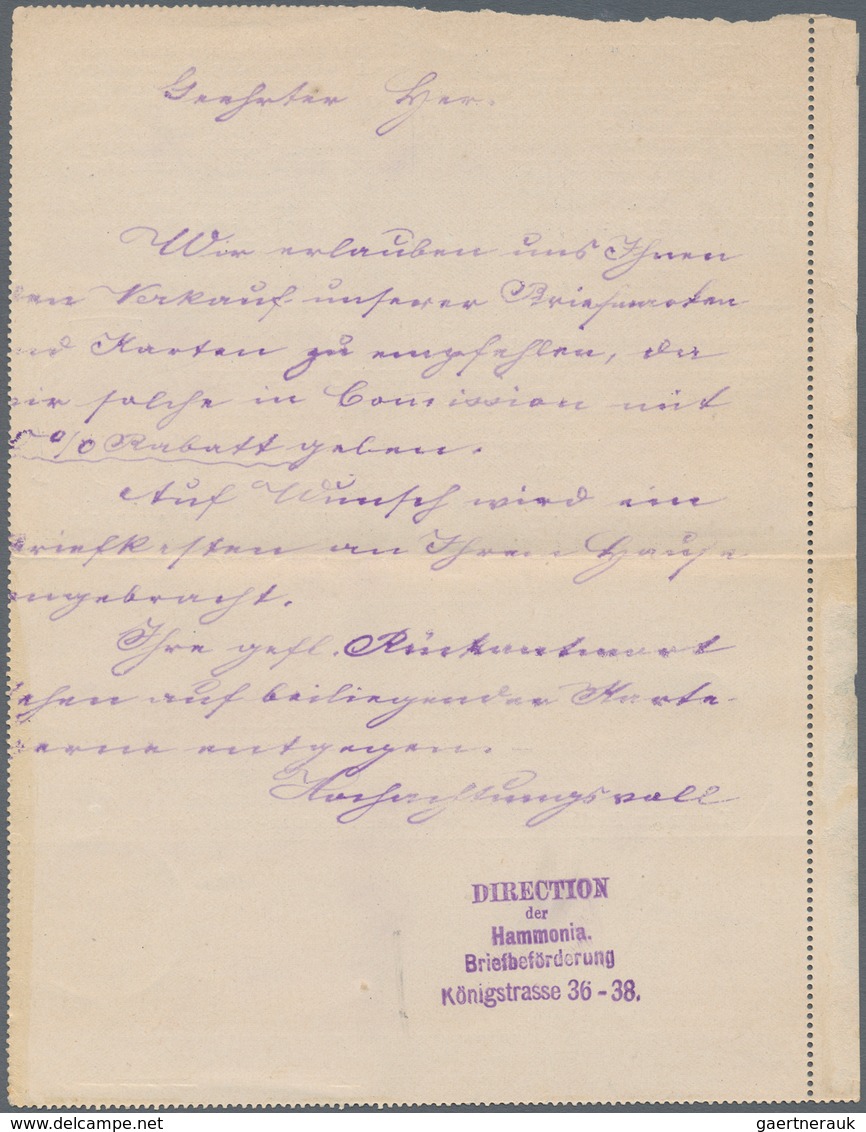 Geehrter Her.
Wir erlauben uns Ihnen
en Verkauf unserer Briefmarken
nd Karten zu empfehlen, da
ir solche in Comission mit
5 % Rabatt geben.
Auf Wunsch wird ein
riefkasten an Ihrem Hause
ngebracht.
Ihre gefl. Rückantwort
ehen auf beiliegender Karte
erne entgegen.
Hochachtungsvoll
DIRECTION
der
Hammonia.
Briefbeförderung
Königstrasse 36 - 38.
www.delcampe.net
gaertnerauk